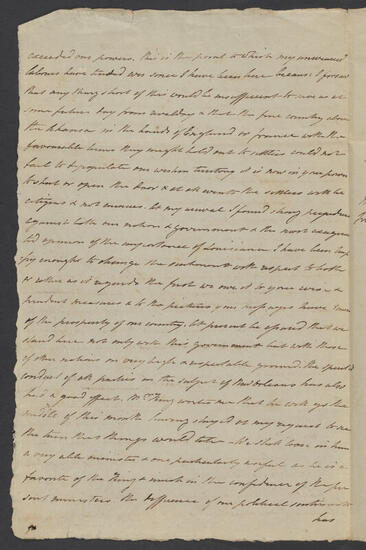 exceeded our powers. this is the point to which my unwearied
labours have tended ever since I have been here because I foresaw
that any thing short of this would be insufficient to save us at
some future day from & that the fine country above
the Arkansa in the hands of England or france with the
favourable terms they might hold out to settlers could not
fail to depopulate our western territory it is now in your power
to shut or open the door & at all events the settlers will be
citizens & not enemies. At my arrival I found strong prejudices
against both our nation & government & the most exagera
ted opinion of the importance of Louisiana I have been hap
py enough to change the sentiment with respect to both
& while as it regards the first we owe it to your wise &
prudent measures & to the pictures your messages have drawn
of the prosperity of our country, at present be assured that we
stand here not only with this government but with those
of other nations on very high & respectable ground. the
conduct of all parties on the subject of New Orleans has also
had a good effect. Mr King writes me that he will go the
middle of this month having stayed at my request to see
the turn that things would take. We shall lose in him
a very able minister & one particularly useful as he is a
favorite of the King & much in the confidence of the pre
sent ministers. the difference of our political sentiments
has